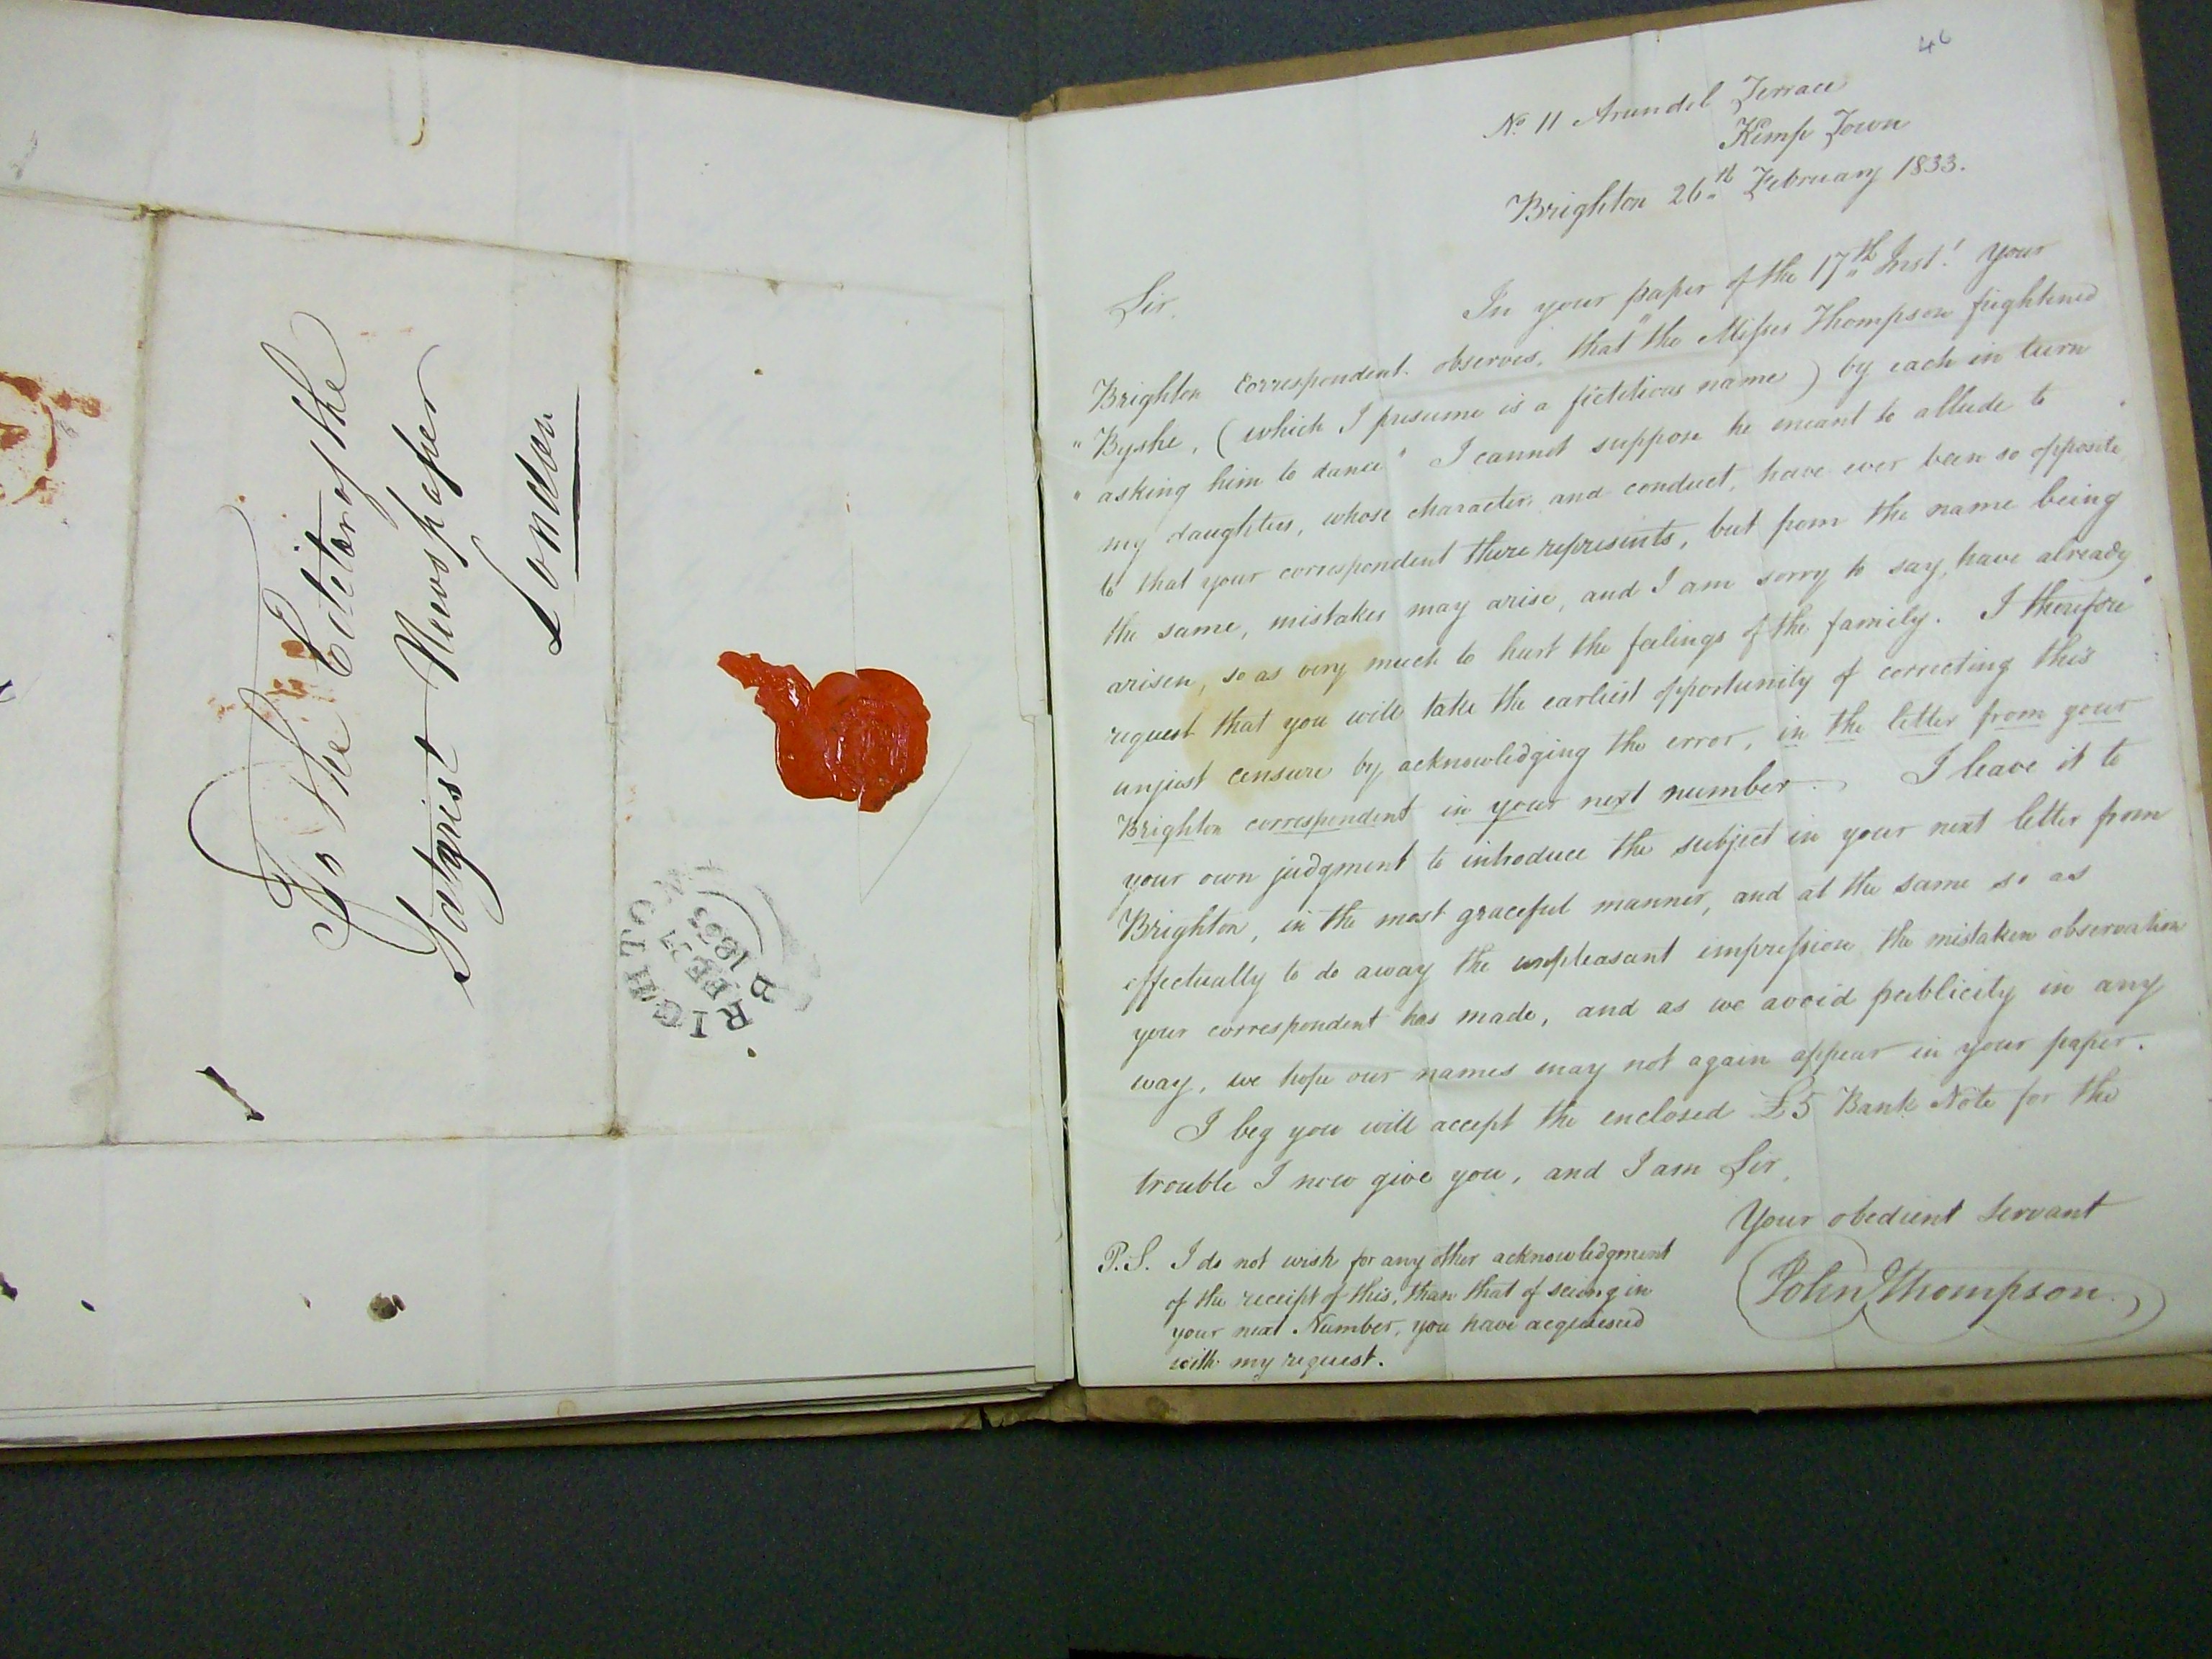 To The Editor of the
Satyrist Newspaper
London
BRIGHTON
FE 27
1833
46
No. 11 Arundel Terrace
Kemp Town
Brighton 26th February 1833.
Sir,
In your paper of the 17th Inst! Your
Brighton Correspondent observes, that "the Misses Thompson frightened
"Byshe, (which I presume is a fictitious name) by each in turn
"asking him to dance" I cannot suppose he meant to allude to
my daughters, whose character, and conduct, have ever been so opposite
to that your correspondent there represents, but from the name being
the same, mistakes may arise, and I am sorry to say, have already
arisen, so as very much to hurt the feelings of the family. I therefore
request that you will take the earliest opportunity of correcting this
unjust censure by acknowledging the error, in the letter from your
Brighton correspondent in your next number. I leave it to
your own judgment to introduce the subject in your next letter from
Brighton, in the most graceful manner, and at the same so as
effectually to do away the unpleasant impression the mistaken observation
your correspondent has made, and as we avoid publicity in any
way, we hope our names may not again appear in your paper.
I beg you will accept the enclosed £5 Bank Note for the
trouble I now give you, and I am Sir,
Your obedient Servant
John Thompson.
P.S. I do not wish for any other acknowledgment
of the receipt of this, than that of seeing in
your next Number, you have acquiesced
with my request.